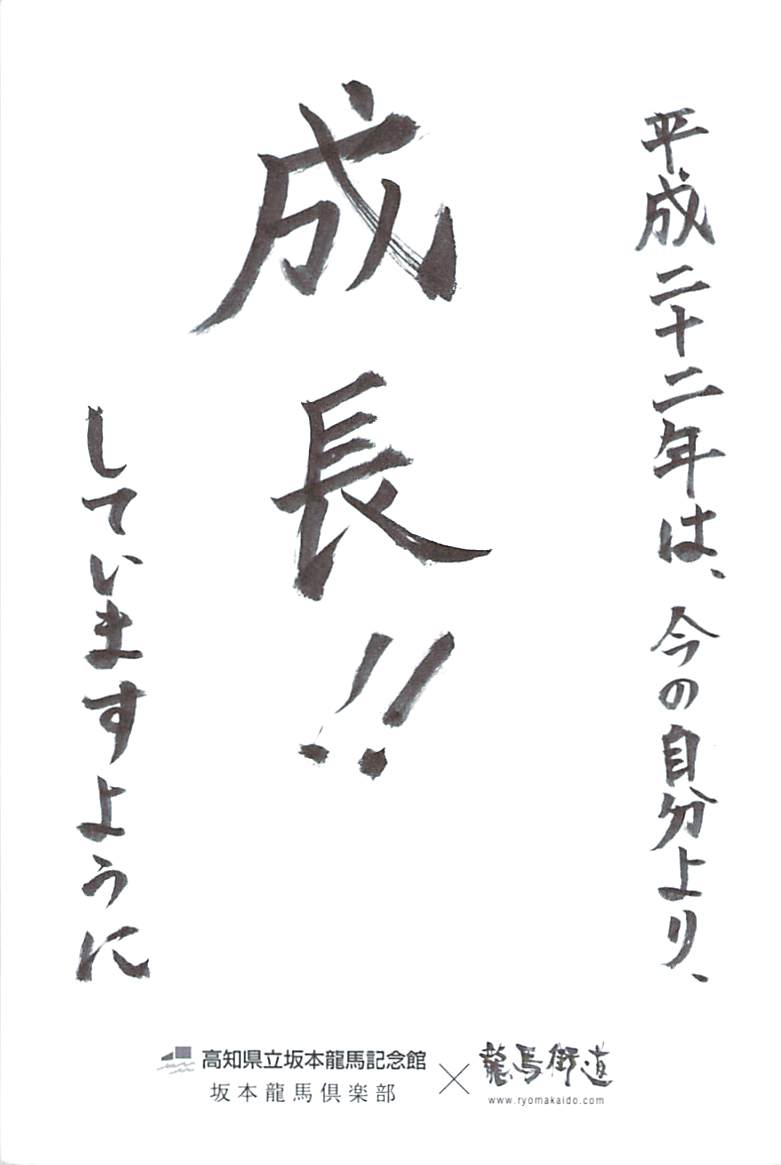 平成二十二年は、今の自分より、
成長!!
していますように
高知県立坂本龍馬記念館
坂本龍馬倶楽部
×
龍馬街道
www.ryomakaido.com